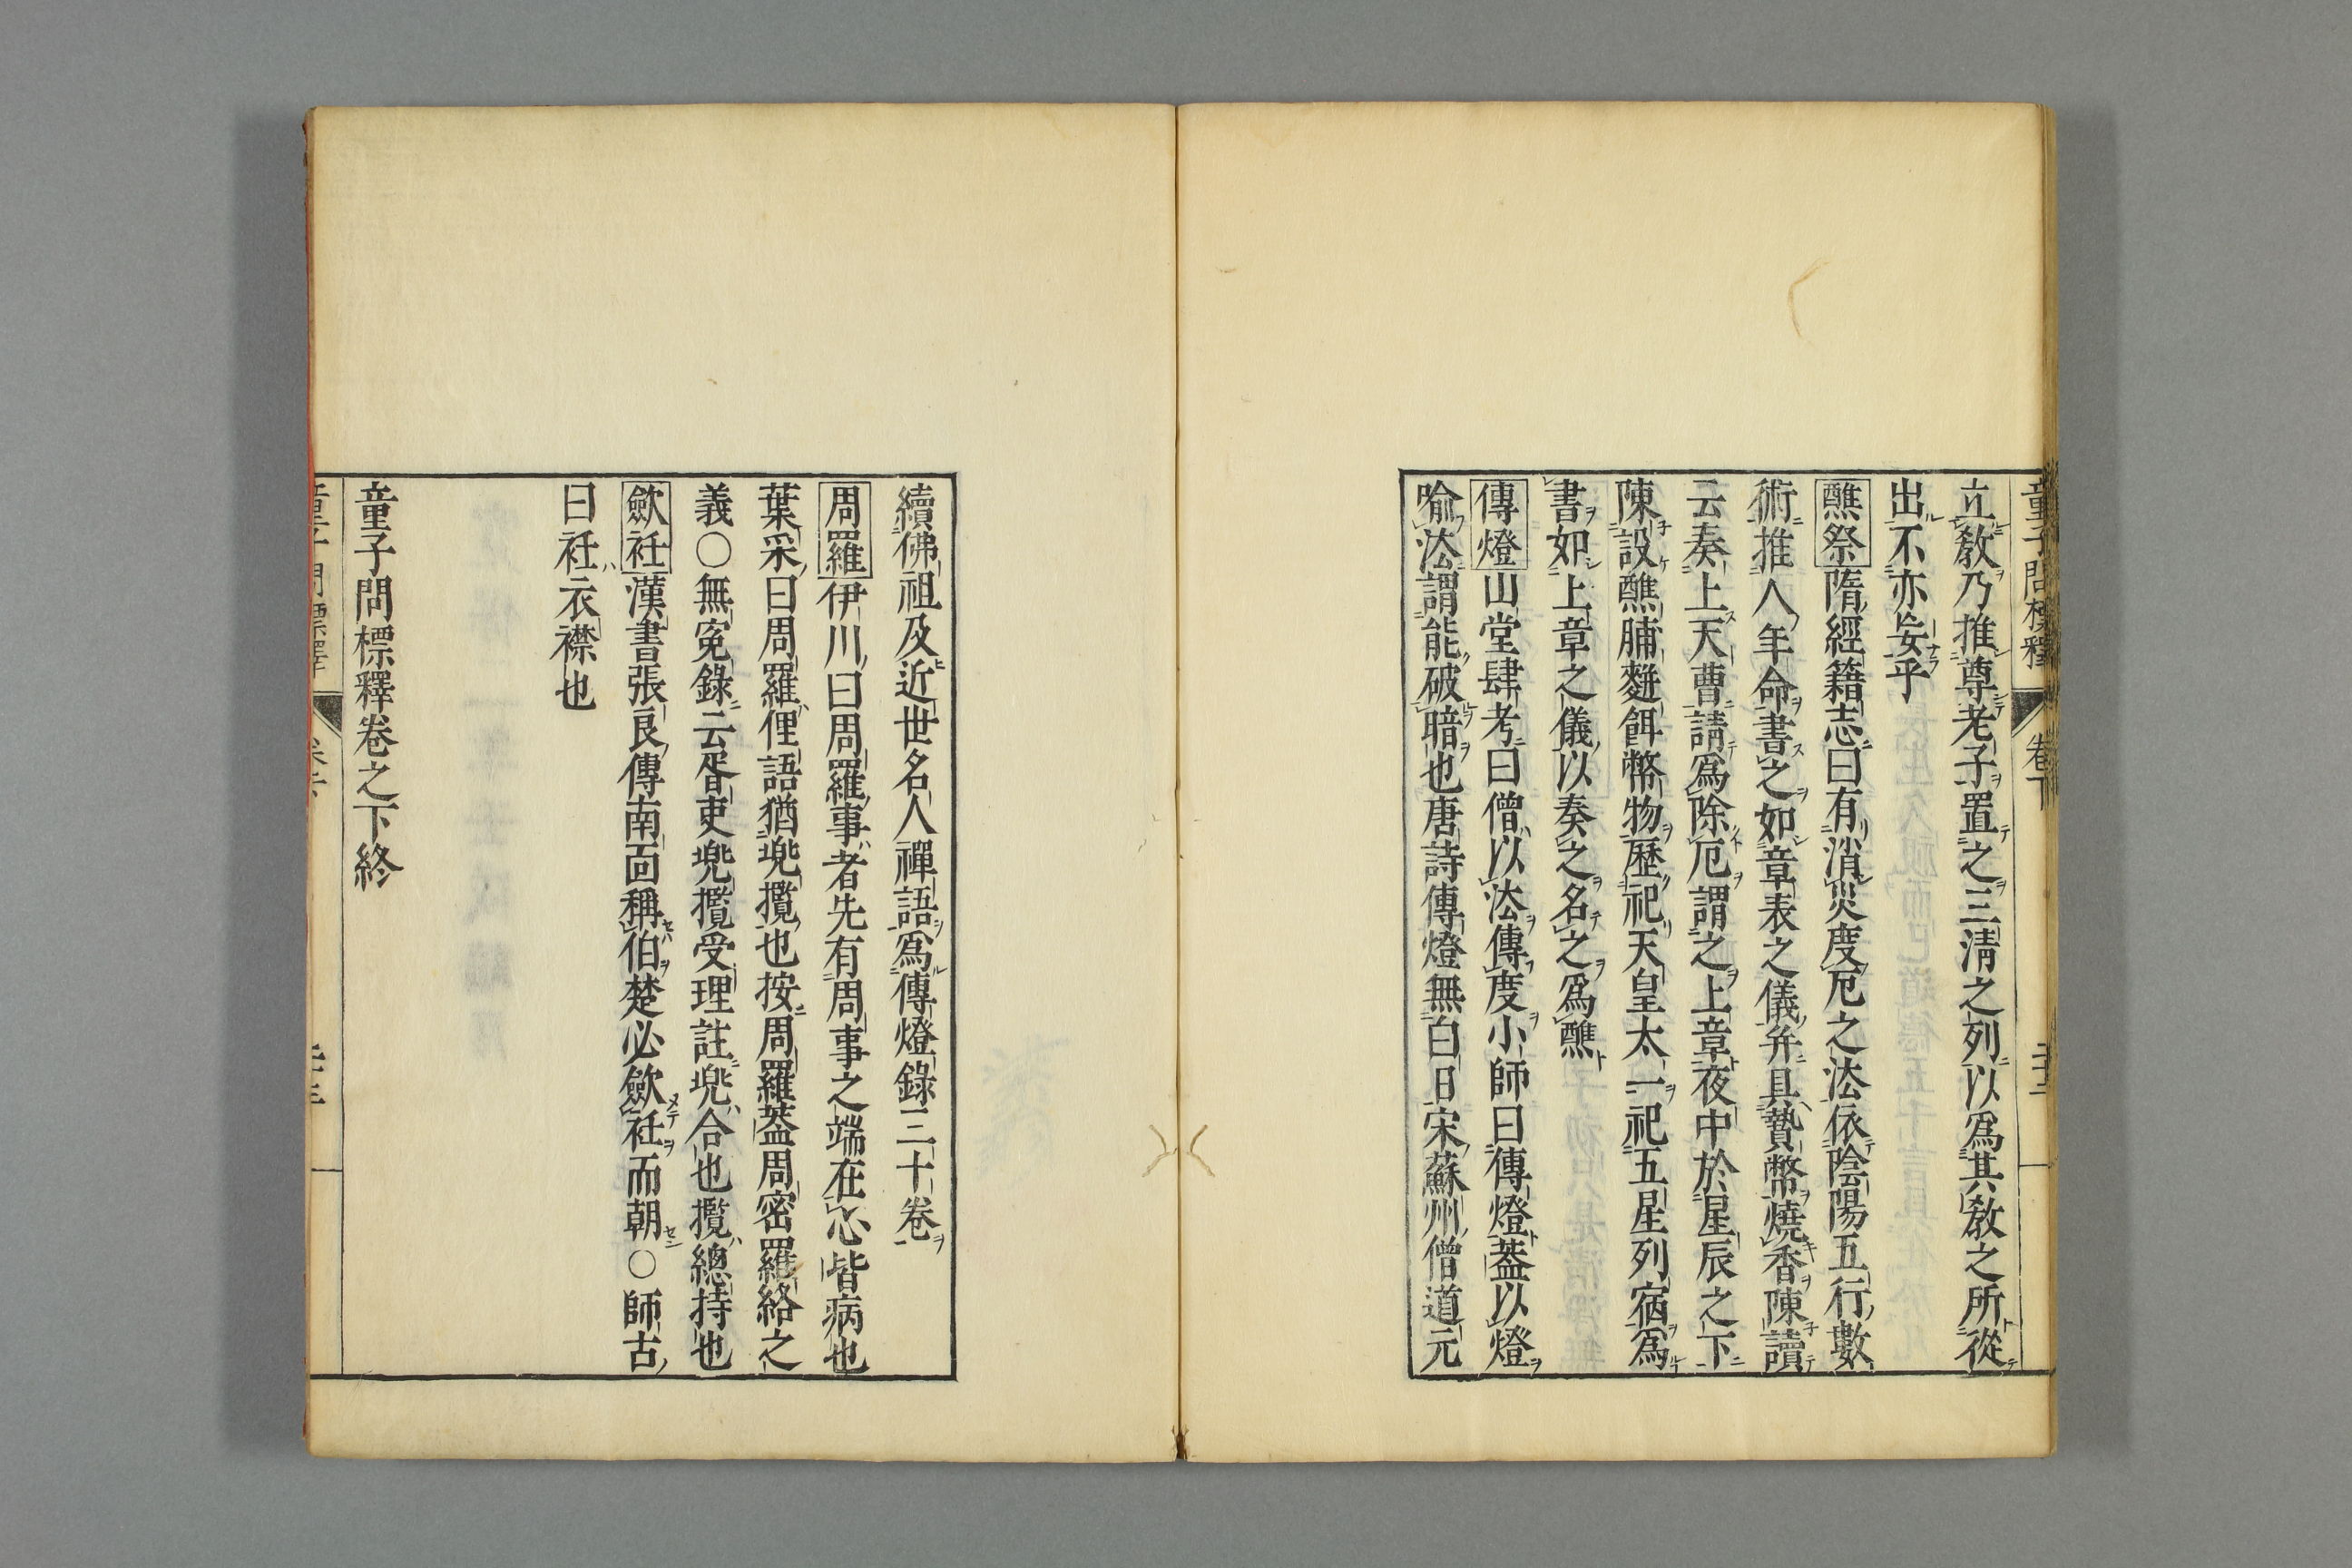 童子問標釋 卷下
立敎乃推尊老子置之三淸之列以爲其敎之所從
出不亦妄乎
醮祭隋經籍志曰有消災度厄之法依陰陽五行數
術推人年命書之如章表之儀幷具贄幣燒香陳讀
云奏上天曹請爲除厄謂之上章夜中於星辰之下
陳設醮脯麪餌幣物歷祀天皇太一祀五星列宿爲
書如上章之儀以奏之名之爲醮
傳燈山堂肆考曰僧以法傳度小師曰傳燈蓋以燈
喻法謂能破暗也唐詩傳燈無白日宋蘇州僧道元
續佛祖及近世名人禪語爲傳燈錄三十卷
周羅伊川曰周羅事者先有周事之端在心皆病也
葉采曰周羅俚語猶兜攬也按周羅蓋周密羅絡之
義○無寃錄云胥吏兜攬受理註兜合也攬總持也
歛衽漢書張良傳南面稱伯楚必歛衽而朝○師古
曰衽衣襟也
童子問標釋卷之下終